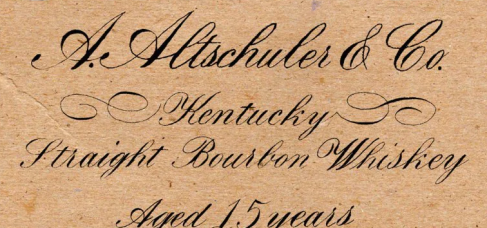 A. Altschuler & Co.
Kentucky
Straight Bourbon Whiskey
Aged 15 years